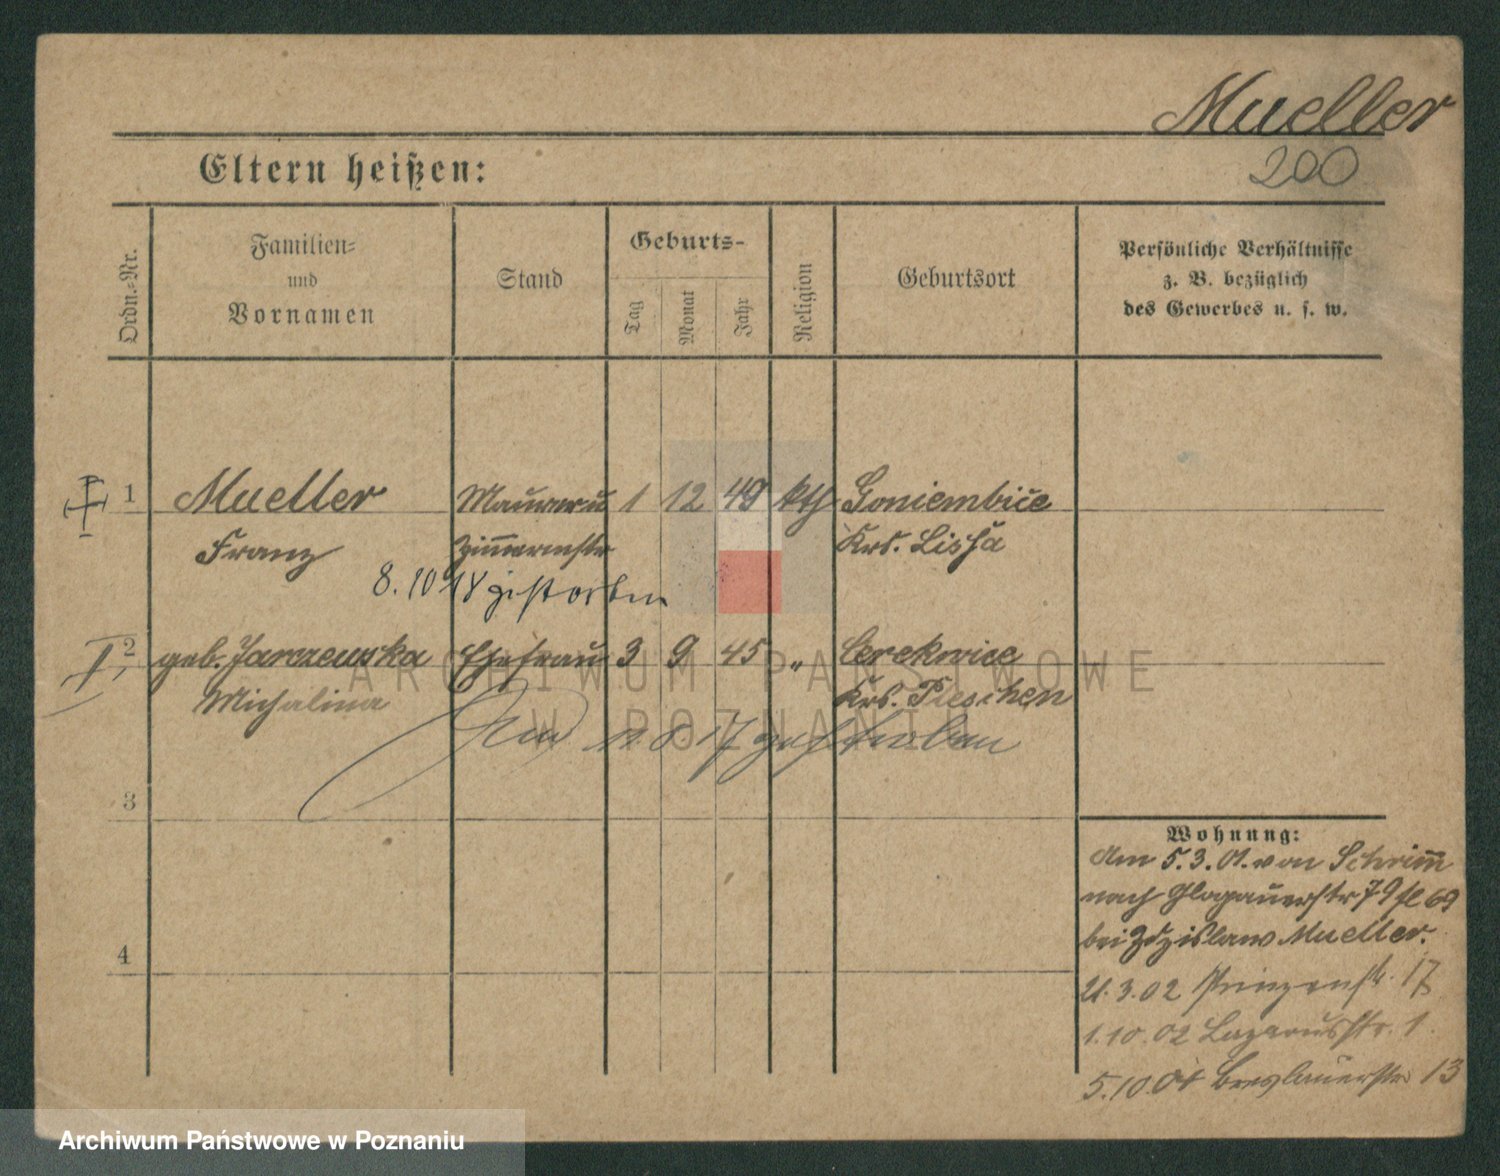 Mueller
200
Eltern heißen:
Ordn.-Nr.
Familien-
und
Vornamen
Stand
Geburts-
Tag
Monat
Jahr
Religion
Geburtsort
Persönliche Verhältnisse
z. B. bezüglich
des Gewerbes u. s. w.
1 Mueller Maurer u 1 12 49 kth Goniembice
Franz Zimmermstr Krs. Lissa
8.10 18 gestorben
2 geb. Jarczewska Ehefrau 3 9 45 " Cerekwice
Michalina Krs. Pleschen
8 17 gestorben
3
4
Wohnung:
Am 5.3.01. von Schrim̄
nach Glogauerstr 79 69
bei Zdzislaw Mueller.
21.3.02 Prinzenstr. 17
1.10.02 Lazarusstr. 1.
5.10.04 Breslauerstr 13
ARCHIWUM PAŃSTWOWE
W POZNANIU
Archiwum Państwowe w Poznaniu